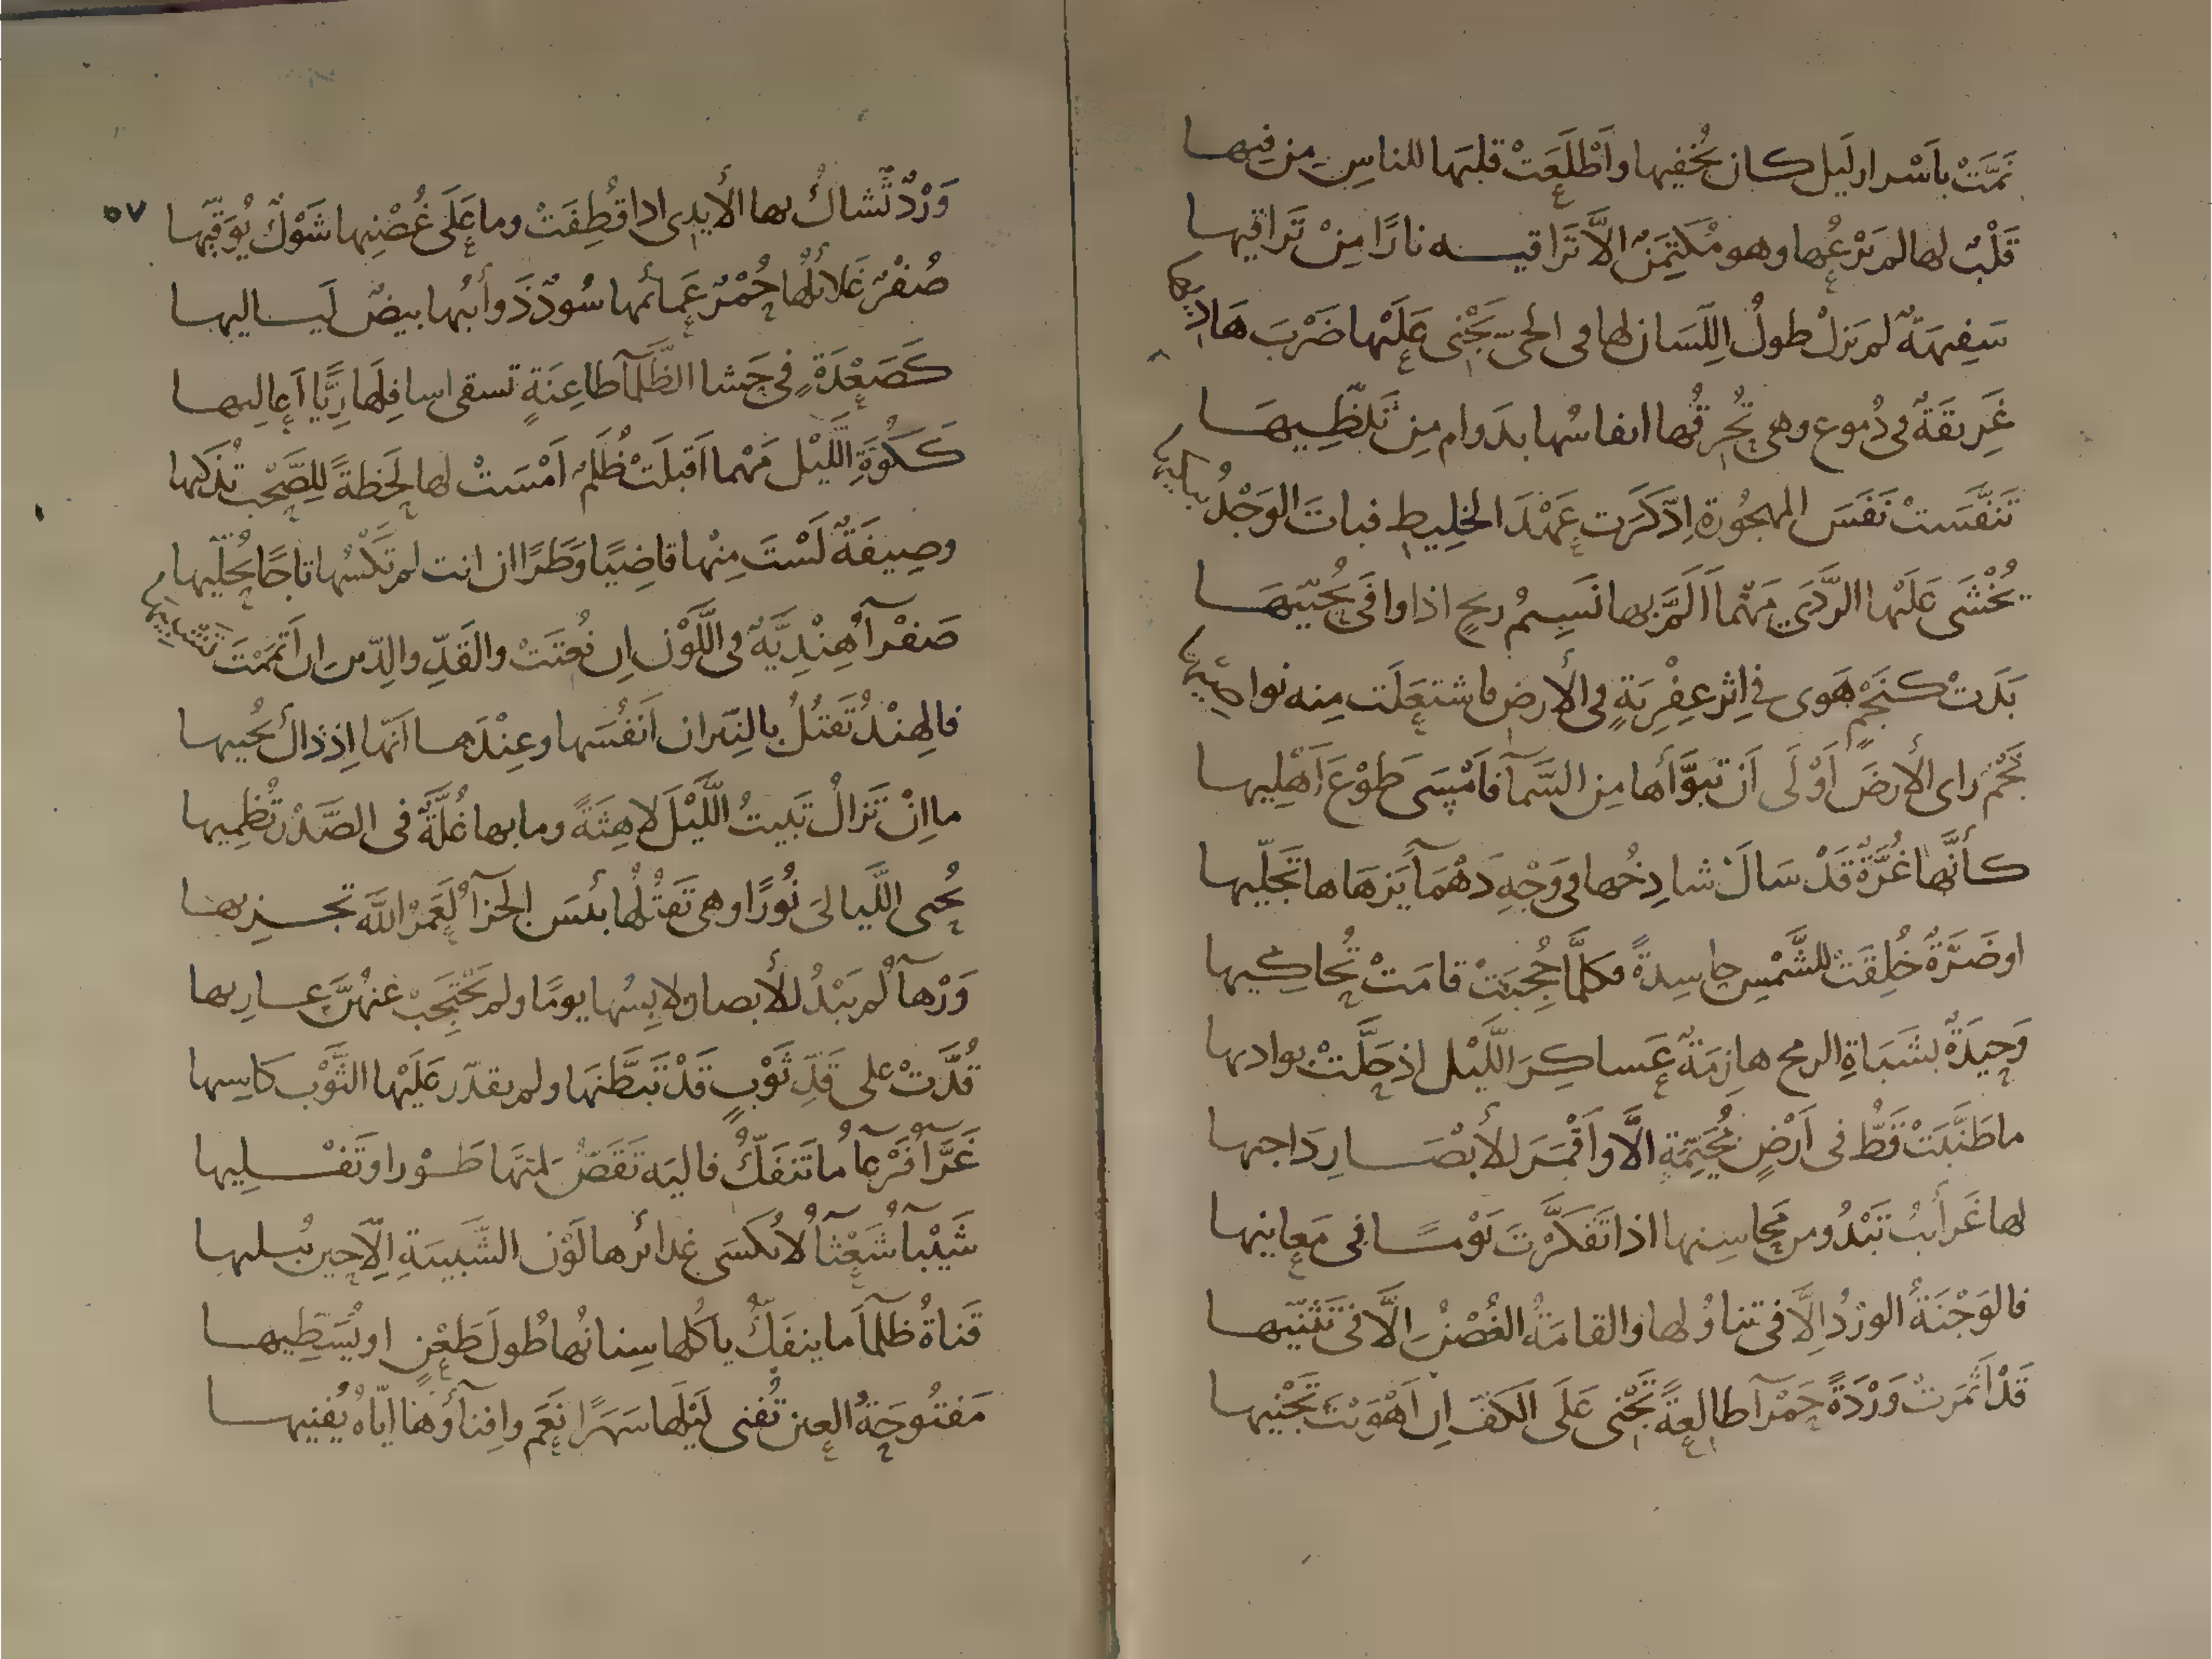 نَمَّتْ بأَسْرار لَيل كان يُخفيها وأَطْلَعَتْ قلبَها للناسِ مِن فيها
قَلْبٌ لها لم يَرُعْها وهو مُكتَمِنٌ الّا تَراقيه نارًا مِنْ تَراقيها
سَفيهَةٌ لم يَزلْ طولُ اللِّسَان لها في الحىّ يَجْنى عَلَيْها ضَرْبَ هَاديها
غَريقَةٌ في دُموع وهي تُحْرِقُها انفاسُها بدَوام مِن تَلَظِّيهَا
تَنفَّسَتْ نَفَسَ المهجُورة اِدّكَرَت عَهْدَ الخلِيطِ فباتَ الوَجْدُ يبكيها
يُخْشَى عَلَيْها الرَّدَى مَهْما أَلَمَّ بها نَسِيمُ ريحٍ اذا وافَى يُحيّيهَا
بَدَتْ كنَجْمٍ هَوى في اِثر عِفْرِيَةٍ في الأرض فاشتعَلَت مِنه نواصيها
نَجْمٌ راى الأرضَ أَوْلَى أَن تبَوَّأها مِن السَّمآ فأَمْسَى طَوْعَ أَهْليها
كأنَّها غُرَّةٌ قَدْ سَالَ شادِخُها في وَجْهِ دَهْمَآ يَزهَاها تَجَلّيها
او ضَرَّةٌ خُلِقَتْ للشَّمْسِ حاسِدةً فكلَّما حُجِبَتْ قامَتْ تُحاكِيها
وَحِيدَةٌ بشَبَاةِ الرمح هازِمَةٌ عَساكِرَ اللَّيْل اِذ حَلَّتْ بوادِيها
ما طَنَّبَتْ قَطُّ في أَرْضٍ مُخَيِّمَةٍ الَّا وأَقْمَرَ للأَبْصَارِ دَاجيها
لها غَرائبُ تَبْدُو من مَحاسِنها اذا تَفَكَّرْتَ يَوْمًا في مَعانيها
فالوَجْنَةُ الورْدُ اِلَّا في تناوُلها والقامَةُ الغُصْنُ الَّا في تَثَنّيها
قَدْ أثمَرتْ وَرْدَةً حَمْرآ طالِعةً تَجْنى عَلَى الكَفّ اِن أَهْوَيْتَ تَجْنيها
وَرْدٌ تُشاكُ بها الأَيدِى اذا قُطِفَتْ وما عَلَى غُصْنِها شَوْكٌ يُوَقّيها
٥٧
صُفْرٌ غَلائلُها حُمْرٌ عَمائمها سُودٌ ذَوائبُها بيضٌ لَياليها
كَصَعْدَةٍ في حَشا الظَّلمآ طاعِنَةٍ تسقى اسافِلَها رِيًّا أَعاليها
كَكُوَّةِ اللَّيْل مَهْما أَقبلَتْ ظُلَمٌ أَمْسَتْ لها لحَظةً للِصَّحْب تُذكيها
وصيفَةٌ لَسْتَ مِنْها قاضِيًا وَطَرًا ان انت لم تَكْسُها تاجًا يُحَلّيها
صَفْرآ هِنْدِيَّةٌ في اللَّوْن اِن نُعِتَتْ والقَدِّ والِدّين اِن أَتمَمْتَ تَشْبيها
فالهِنْدُ تَقتُلُ بالنيران أَنفُسَها وعِنْدَها أنّها اِذ ذاك يُحييها
ما اِنْ تَزالُ تَبيتُ اللَّيْلَ لاهِثَةً وما بها غُلَّةٌ في الصَّدْر تُظمِيها
تُحيى اللَّيالىَ نُورًا وهى تَقتُلُها بئسَ الجزآ لَعَمْرُ اللّه تجزيها
وَرْهآ لم يَبْدُ للأَبصار لابِسُها يومًا ولم يَحْتَجِبْ عَنهُنَّ عاريها
قُدَّتْ على قَدِّ ثَوْبٍ قَدْ تَبَطَّنَها ولم يقدّر عَلَيْها الثَّوْبَ كاسِيها
غَرَّآ فَرْعآ ما تَنفَكُّ فاليَه تَقَصُّ لمتَها طَوْرا وتَفْليها
شَيْبآ شَعْثآ لا تُكسَى غدائرها لَوْن الشَّبيبَةِ اِلّا حِين تُبليها
قَناةُ ظَلمآ ما ينفَكُّ ياكُلها سِنانُها طُولَ طَعْنٍ او يُشَظِّيها
مَفتُوحَةُ العين تُفنى لَيْلَها سَهَرًا نَعَم وافنآؤها ايّاهُ يُفنيها